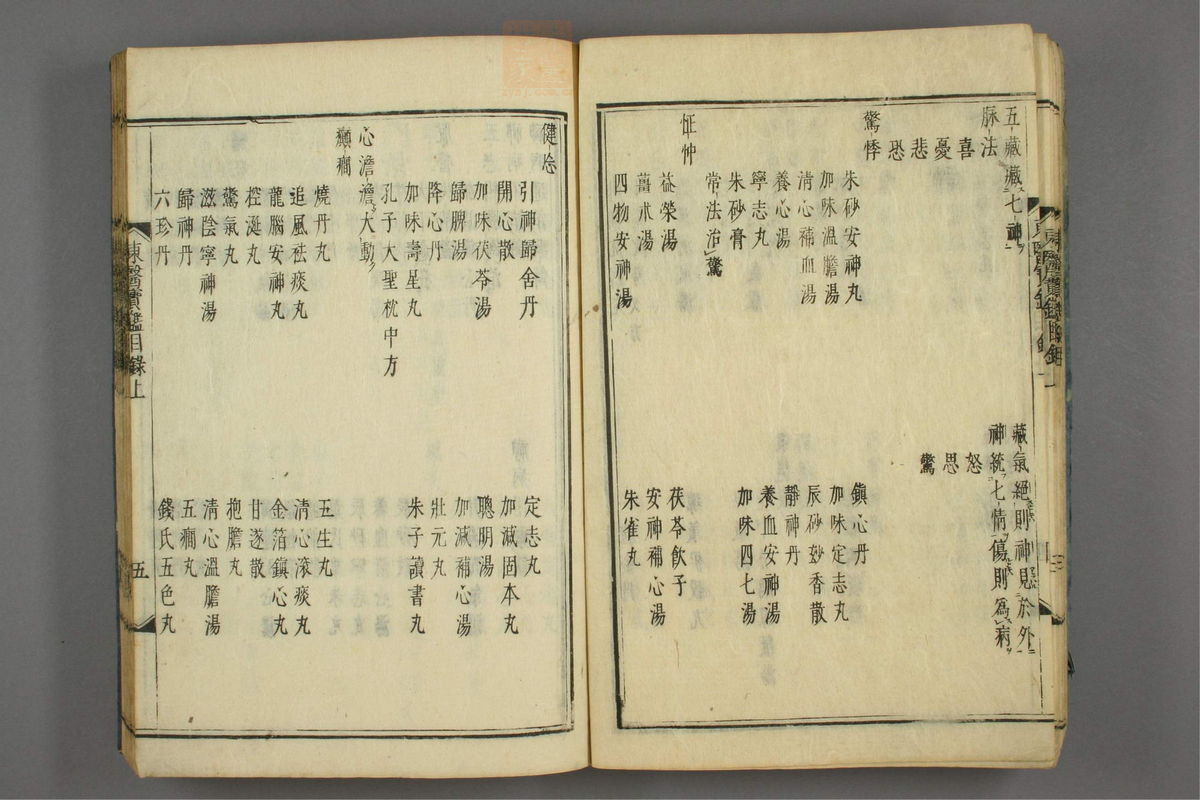 五藏藏七神
藏氣絕則神見於外
脉法
神統七情傷則爲病
喜
怒
憂
思
悲
驚
恐
驚悸
朱砂安神丸
鎭心丹
加味溫膽湯
加味定志丸
淸心補血湯
辰砂妙香散
養心湯
靜神丹
寧志丸
養血安神湯
朱砂膏
加味四七湯
常法治驚
怔忡
益榮湯
茯苓飮子
薑朮湯
安神補心湯
四物安神湯
朱雀丸
健忘
引神歸舍丹
定志丸
開心散
加減固本丸
加味茯苓湯
聰明湯
歸脾湯
加減補心湯
降心丹
壯元丸
加味壽星丸
朱子讀書丸
孔子大聖枕中方
心澹澹大動
癲癎
燒丹丸
五生丸
追風祛痰丸
淸心滾痰丸
龍腦安神丸
金箔鎭心丸
控涎丸
甘遂散
驚氣丸
抱膽丸
滋陰寧神湯
淸心溫膽湯
歸神丹
五癎丸
六珍丹
錢氏五色丸
東醫寶鑑目錄上
五